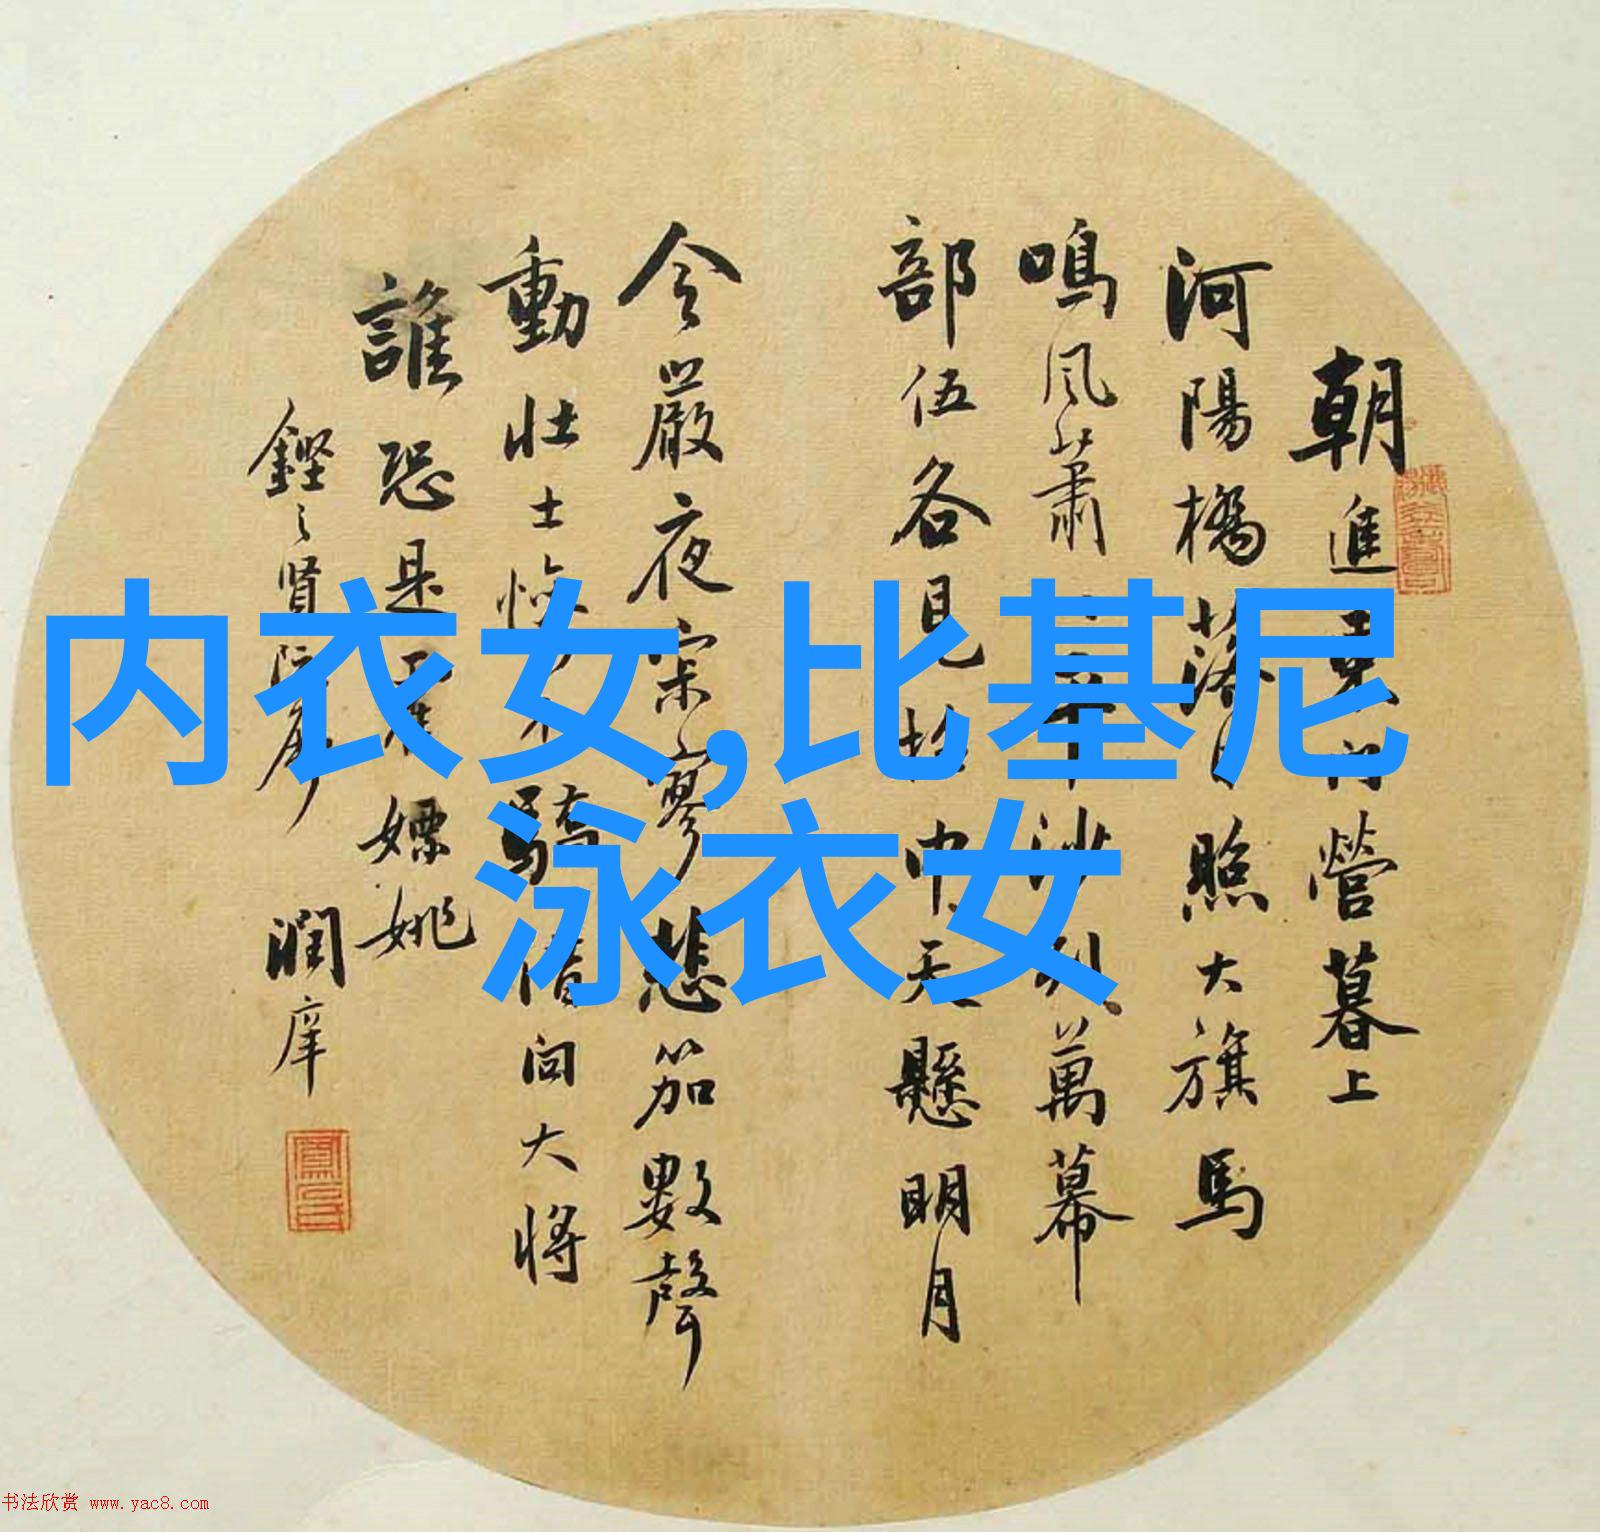 内衣女,比基尼
泳衣女
朝進東門營暮上
河陽橋落日照大旗馬
鳴風蕭〻平沙列萬幕
部伍各見招中天懸明月
令嚴夜寂寥悲笳數聲
動壯士慘不驕借問大將
誰恐是霍嫖姚
鏗之賢阮
潤庠
书法欣赏 www.yac8.com